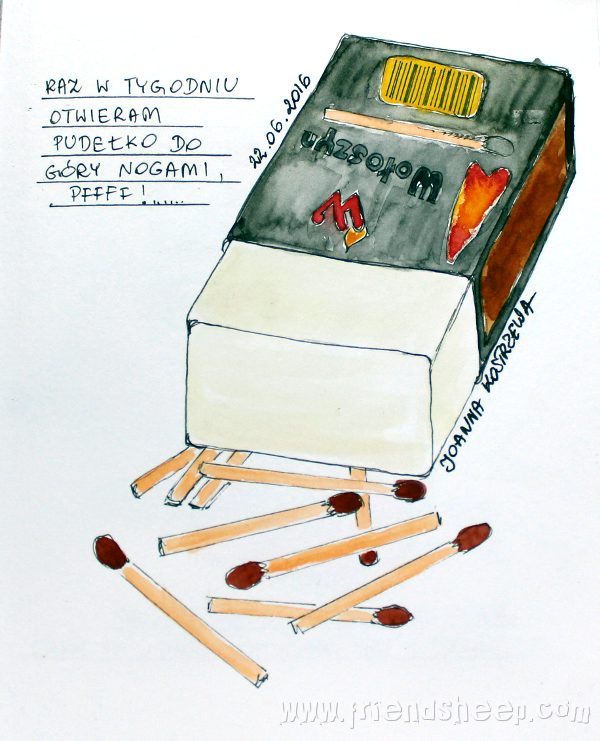 RAZ W TYGODNIU
OTWIERAM
PUDEŁKO DO
GÓRY NOGAMI,
PFFFF!......
22.06.2016
Wołoszyn
JOANNA KOSTRZEWA
www.friendsheep.com